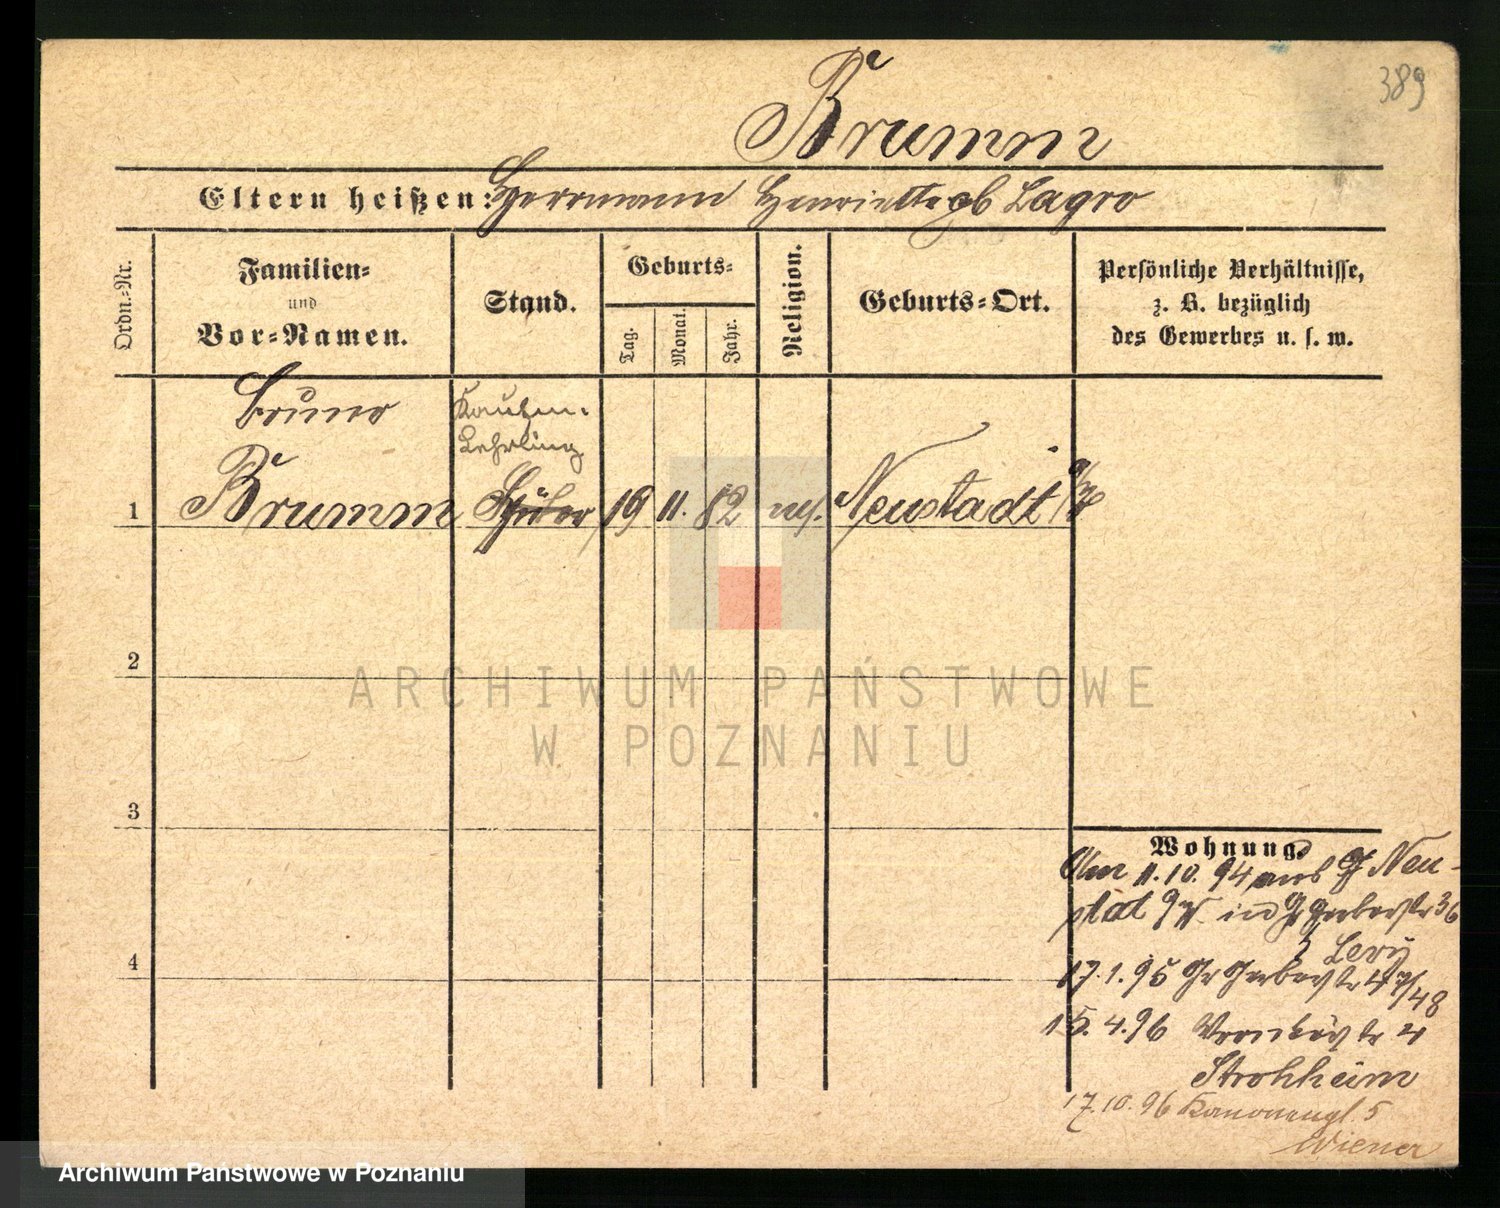 389
Brumm
Eltern heißen: Herrmann Henriette gb Lagro
Ordn.-Nr.
Familien-
und
Vor-Namen.
Stand.
Geburts-
Tag.
Monat.
Jahr.
Religion.
Geburts-Ort.
Persönliche Verhältnisse,
z. B. bezüglich
des Gewerbes u. s. w.
Bruno
Kaufm.
Lehrling
1 Brumm Schüler 19 11. 82 Neustadt
2
3
4
Wohnung.
Am 11.10.94 aus Neu-
stat in Gr Gerberstr 36
Levy
17.1.95 Gr Gerberstr 47/48
15.4.96 Wronkerstr 4
Strohheim
17.10.96 Kanonenpl 5
Wiener
ARCHIWUM PAŃSTWOWE
W POZNANIU
Archiwum Państwowe w Poznaniu